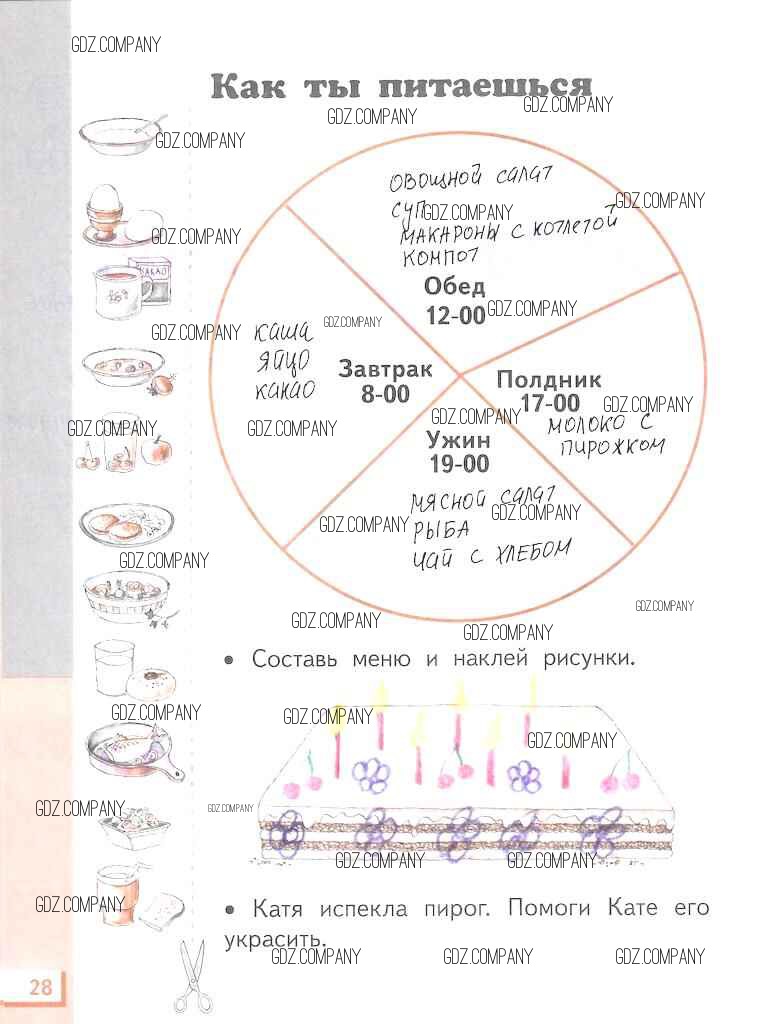 GDZ.COMPANY
Как ты питаешься
GDZ.COMPANY
GDZ.COMPANY
GDZ.COMPANY
овощной салат
суп
GDZ.COMPANY
GDZ.COMPANY
макароны с котлетой
компот
GDZ.COMPANY
КАКАО
Обед
12-00
GDZ.COMPANY
GDZ.COMPANY
GDZ.COMPANY
каша
яйцо
какао
Завтрак
8-00
Полдник
17-00
GDZ.COMPANY
молоко с
пирожком
GDZ.COMPANY
GDZ.COMPANY
GDZ.COMPANY
Ужин
19-00
мясной салат
рыба
чай с хлебом
GDZ.COMPANY
GDZ.COMPANY
GDZ.COMPANY
GDZ.COMPANY
GDZ.COMPANY
GDZ.COMPANY
• Составь меню и наклей рисунки.
GDZ.COMPANY
GDZ.COMPANY
GDZ.COMPANY
GDZ.COMPANY
GDZ.COMPANY
GDZ.COMPANY
GDZ.COMPANY
GDZ.COMPANY
• Катя испекла пирог. Помоги Кате его
украсить.
GDZ.COMPANY
GDZ.COMPANY
GDZ.COMPANY
28